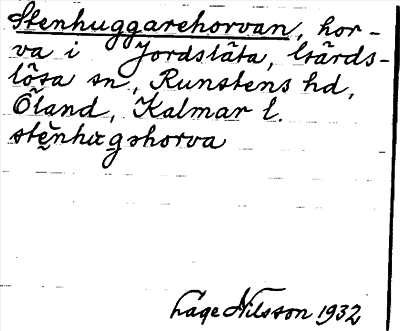 Stenhuggarehorvan, hor-
va i Jordsläta, Gärds-
lösa sn, Runstens hd,
Öland, Kalmar l.
stènhugshorva
Lage Nilsson 1932